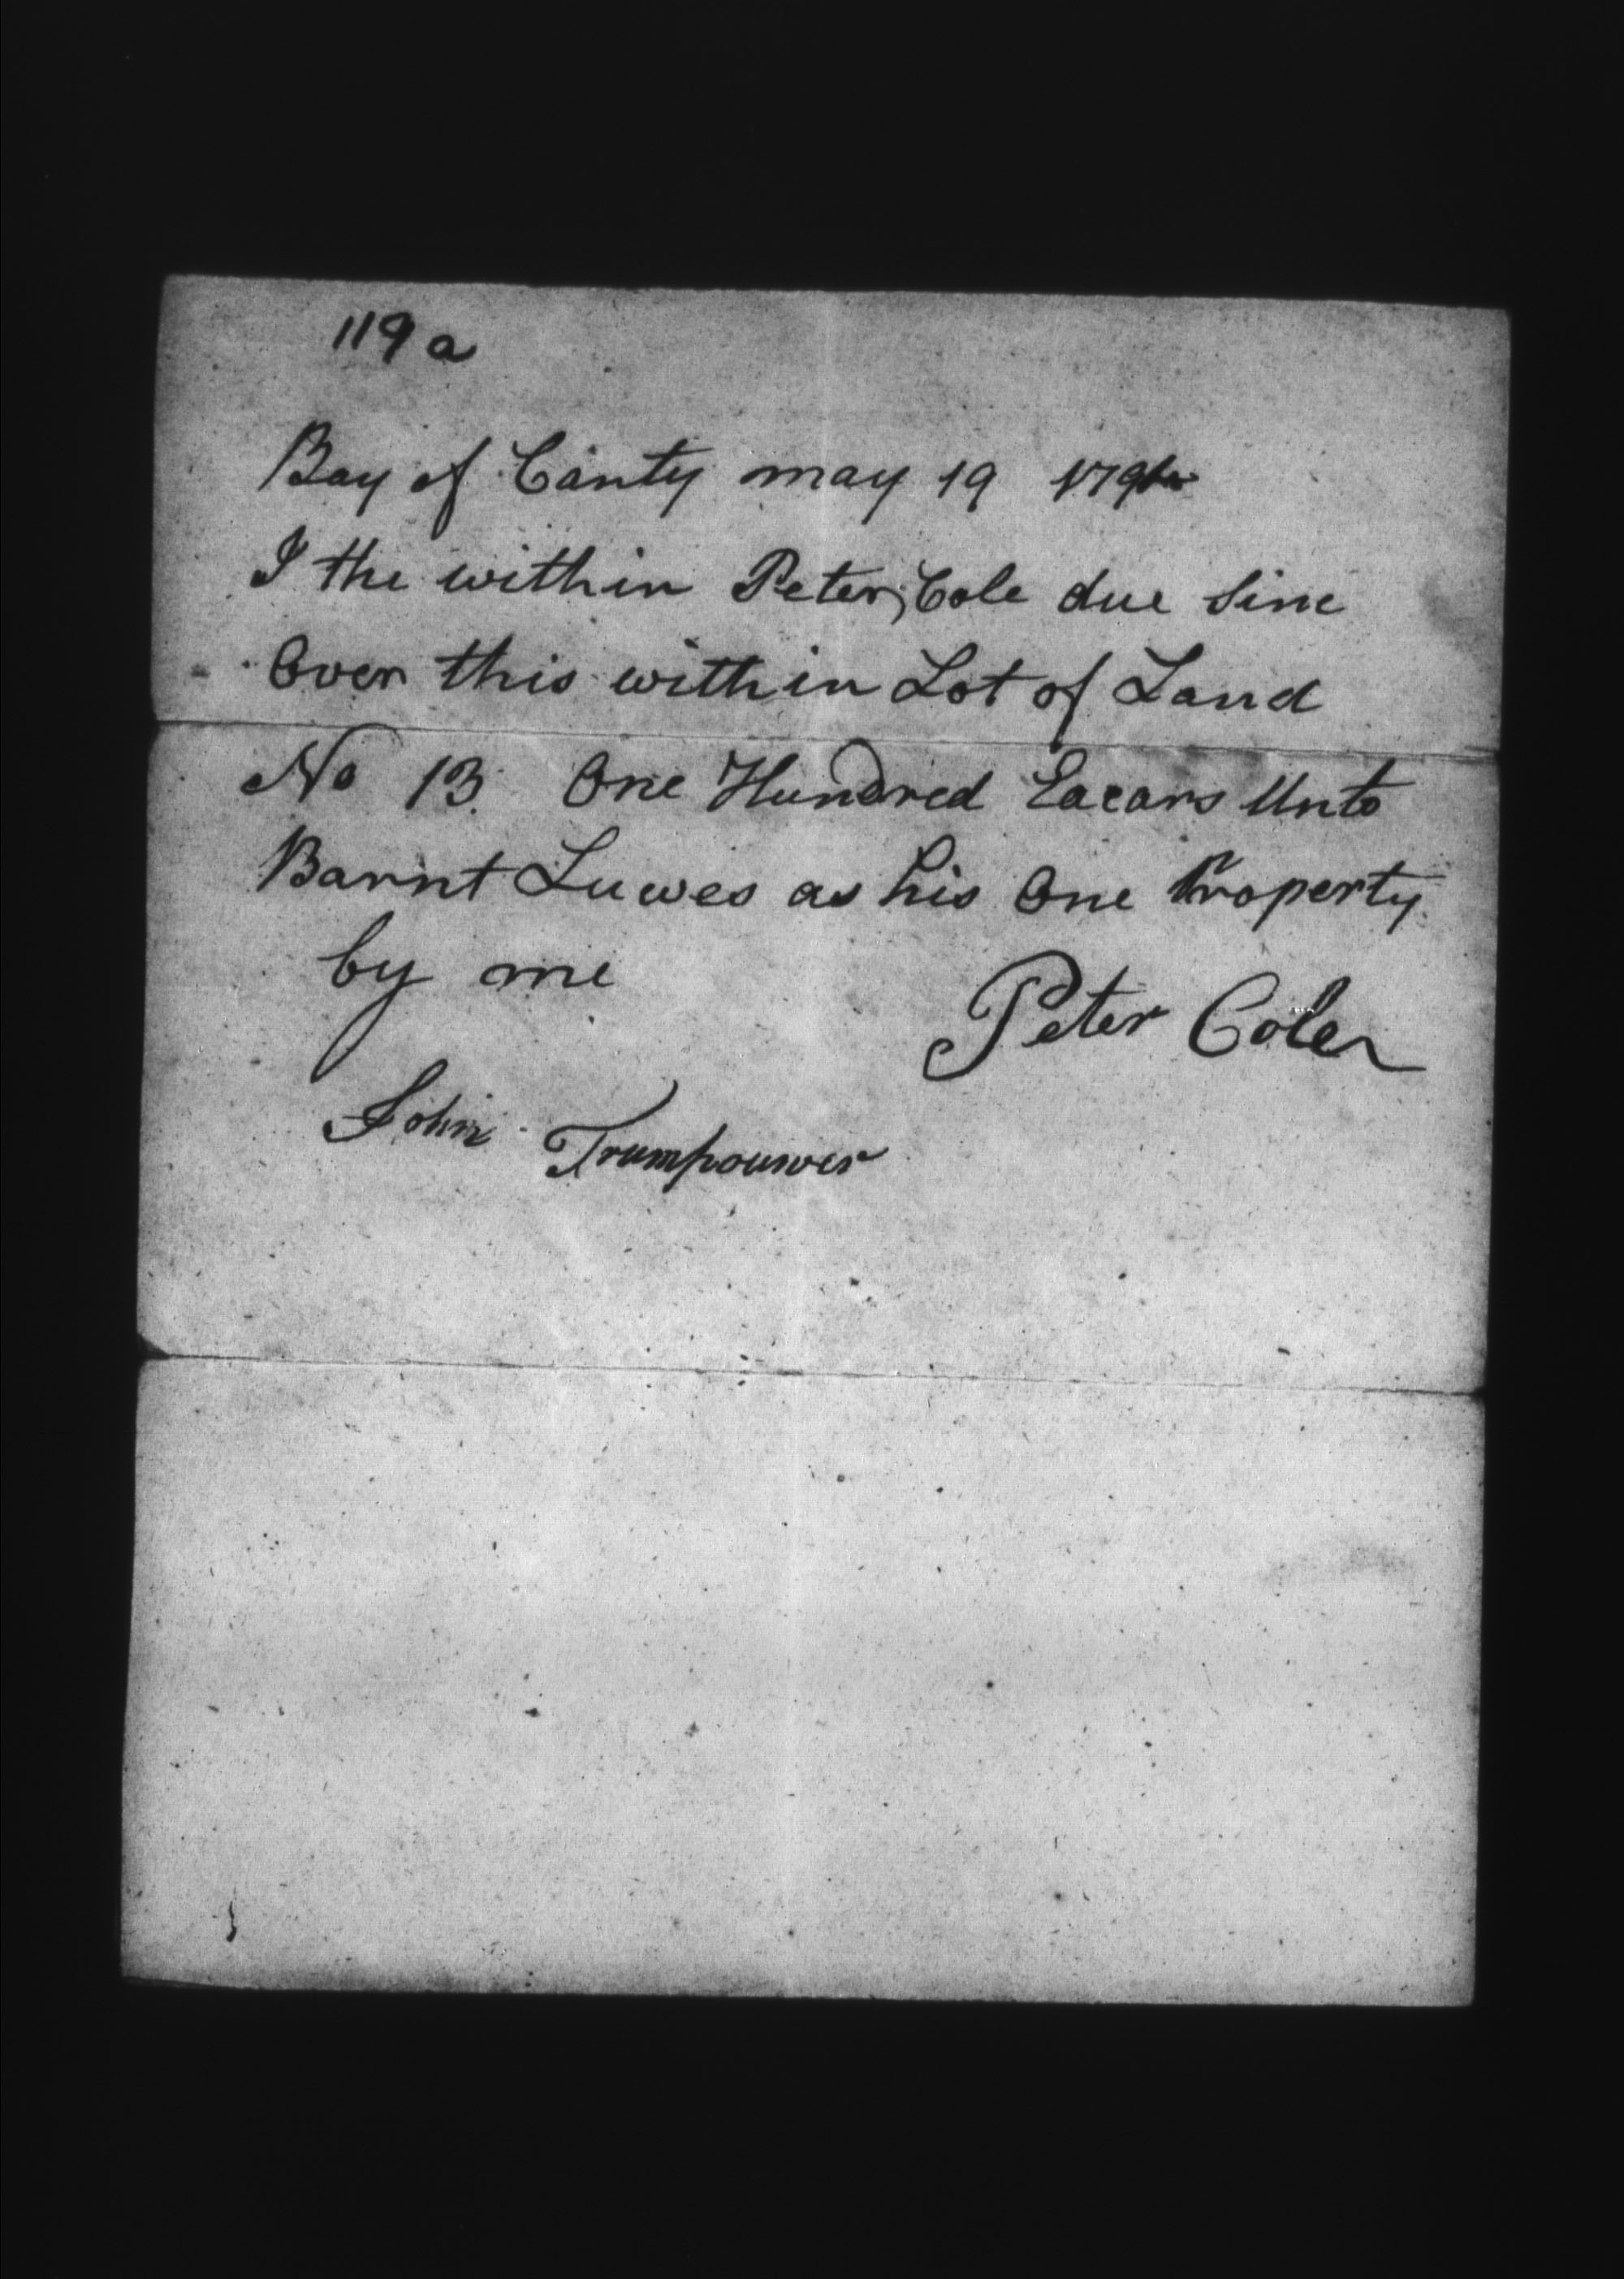 119 a
Bay of Canty may 19
I the within Peter Cole due Sine
Over this within Lot of Land
No 13. One Hundred Eacars Unto
Barnt Luwes as his One Property
by me
Peter Coler
John Trumpouwer